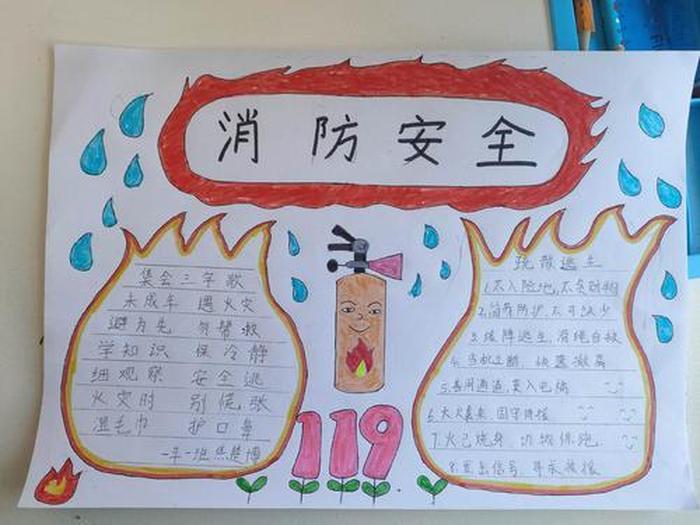 消防安全
集会三字歌
未成年 遇火灾
避为先 勿帮救
学知识 保冷静
细观察 安全逃
火灾时 别慌张
湿毛巾 护口鼻
一年一班 楚博
119
疏散逃生
1.不入险地,不贪财物
2.简易防护,不可缺少
3.缓降逃生,滑绳自救
4.当机立断,快速撤离
5.善用通道,莫入电梯
6.大火袭来,固守待援
7.火已烧身,切勿惊跑
8.发出信号,寻求救援